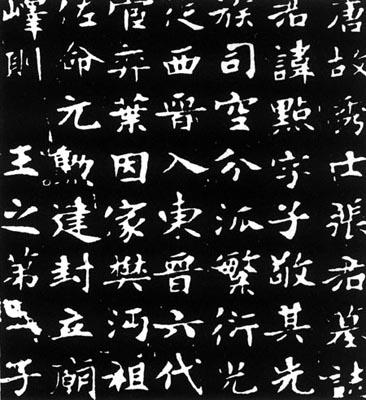 唐故秀士張君墓誌
君諱點字子敬其先
族司空分派繁衍光
從西晉入東晉六代
宦弈葉因家樊沔祖
佐命元勳建封立廟
嶧則 王之第子